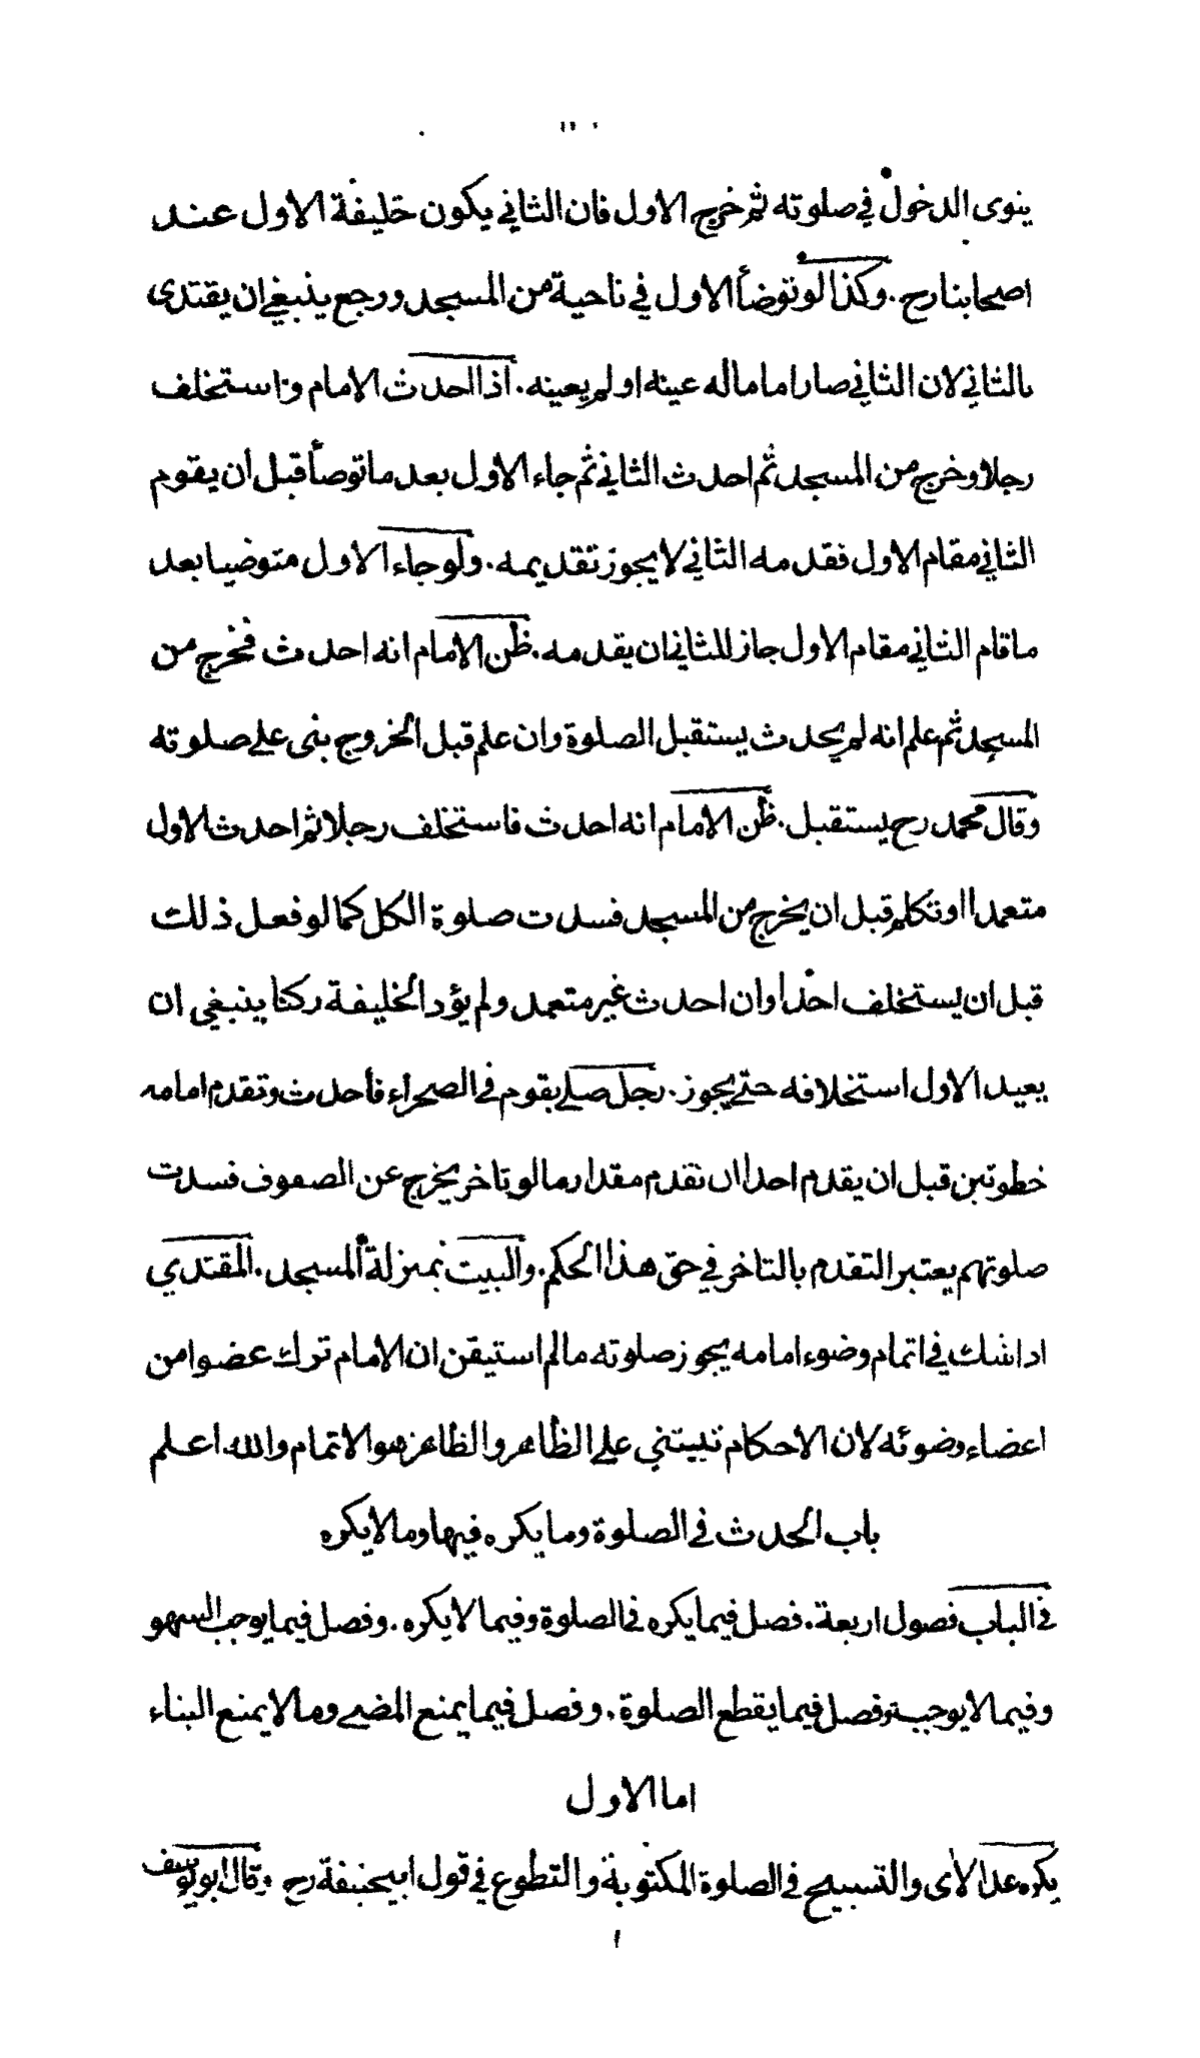 ينوى الدخول في صلوته ثم خرج الاول فان الثاني يكون خليفة الاول عند
اصحابنا رح . وكذا لو توضأ الاول في ناحية من المسجد ورجع ينبغي ان يقتدى
بالثاني لان الثاني صار اماما له عينه او لم يعينه . اذا احدث الامام واستخلف
رجلا وخرج من المسجد ثم احدث الثاني ثم جاء الاول بعد ما توضأ قبل أن يقوم
الثاني مقام الاول فقدمه الثاني لا يجوز تقديمه . ولو جاء الاول متوضيا بعد
ما قام الثاني مقام الاول جاز للثاني ان يقدمه . ظن الامام انه احدث فخرج من
المسجد ثم علم انه لم يحدث يستقبل الصلوة وان علم قبل الخروج بنى على صلوته
وقال محمد رح يستقبل . ظن الامام انه احدث فاستخلف رجلا ثم احدث الاول
متعمدا او تكلم قبل ان يخرج من المسجد فسدت صلوة الكل كما لو فعل ذلك
قبل ان يستخلف احدا وان احدث غير متعمد ولم يؤد الخليفة ركنا ينبغي ان
يعيد الاول استخلافه حتى يجوز . رجل صلى بقوم في الصحراء فأحدث وتقدم امامه
خطوتين قبل ان يقدم احدا ان تقدم مقدار ما لو تاخر يخرج عن الصفوف فسدت
صلوتهم يعتبر التقدم بالتاخر في حق هذا الحكم . والبيت بمنزلة المسجد . المقتدي
اذا شك في اتمام وضوء امامه يجوز صلوته ما لم استيقن ان الامام ترك عضوا من
اعضاء وضوئه لان الاحكام تبيتني على الظاهر والظاهر هو الاتمام والله اعلم
باب الحدث في الصلوة وما يكره فيها وما لا يكره
في الباب فصول اربعة . فصل فيما يكره في الصلوة وفيما لا يكره . وفصل فيما يوجب السهو
وفيما لا يوجب وفصل فيما يقطع الصلوة . وفصل فيما يمنع المضي وما لا يمنع البناء
اما الاول
يكره عد الأى والتسبيح في الصلوة المكتوبة والتطوع في قول ابيحنيفة رح وقال ابو يوسف